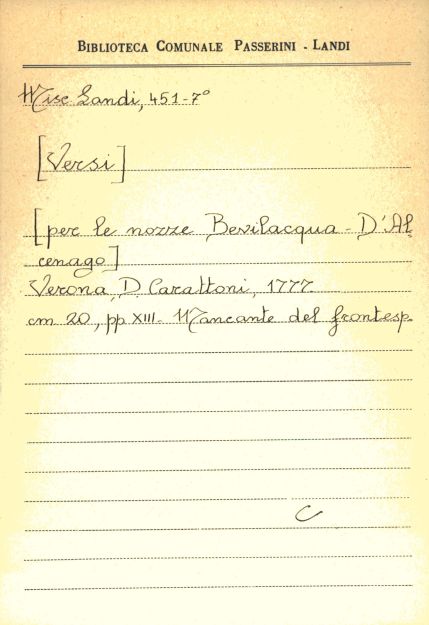 BIBLIOTECA COMUNALE PASSERINI - LANDI
Misc Landi, 451-7°
[Versi]
[per le nozze Bevilacqua - D'Al
cenago]
Verona, D. Carattoni, 1777
cm 20, pp XIII - Mancante del frontesp.
C